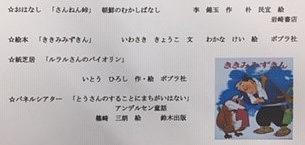 ☆おはなし 「さんねん峠」 朝鮮のむかしばなし 李 錦玉 作 朴 民宜 絵
岩崎書店
☆絵本 「ききみみずきん」 いわさき きょうこ 文 わかな けい 絵 ポプラ社
☆紙芝居 「ルラルさんのバイオリン」
いとう ひろし 作・絵 ポプラ社
☆パネルシアター 「とうさんのすることにまちがいはない」
アンデルセン童話
篠崎 三朗 絵 鈴木出版
ききみみずきん